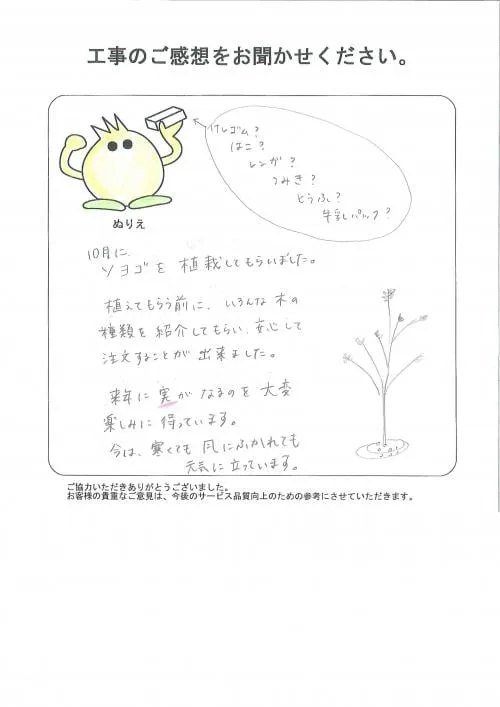 工事のご感想をお聞かせください。
けしゴム？
はこ？
レンガ？
つみき？
とうふ？
牛乳パック？
ぬりえ
10月に、
ソヨゴを植栽してもらいました。
植えてもらう前に、いろんな木の
種類を紹介してもらい、安心して
注文することが出来ました。
来年に実がなるのを大変
楽しみに待っています。
今は、寒くても風にふかれても
元気に立っています。
ご協力いただきありがとうございました。
お客様の貴重なご意見は、今後のサービス品質向上のための参考にさせていただきます。